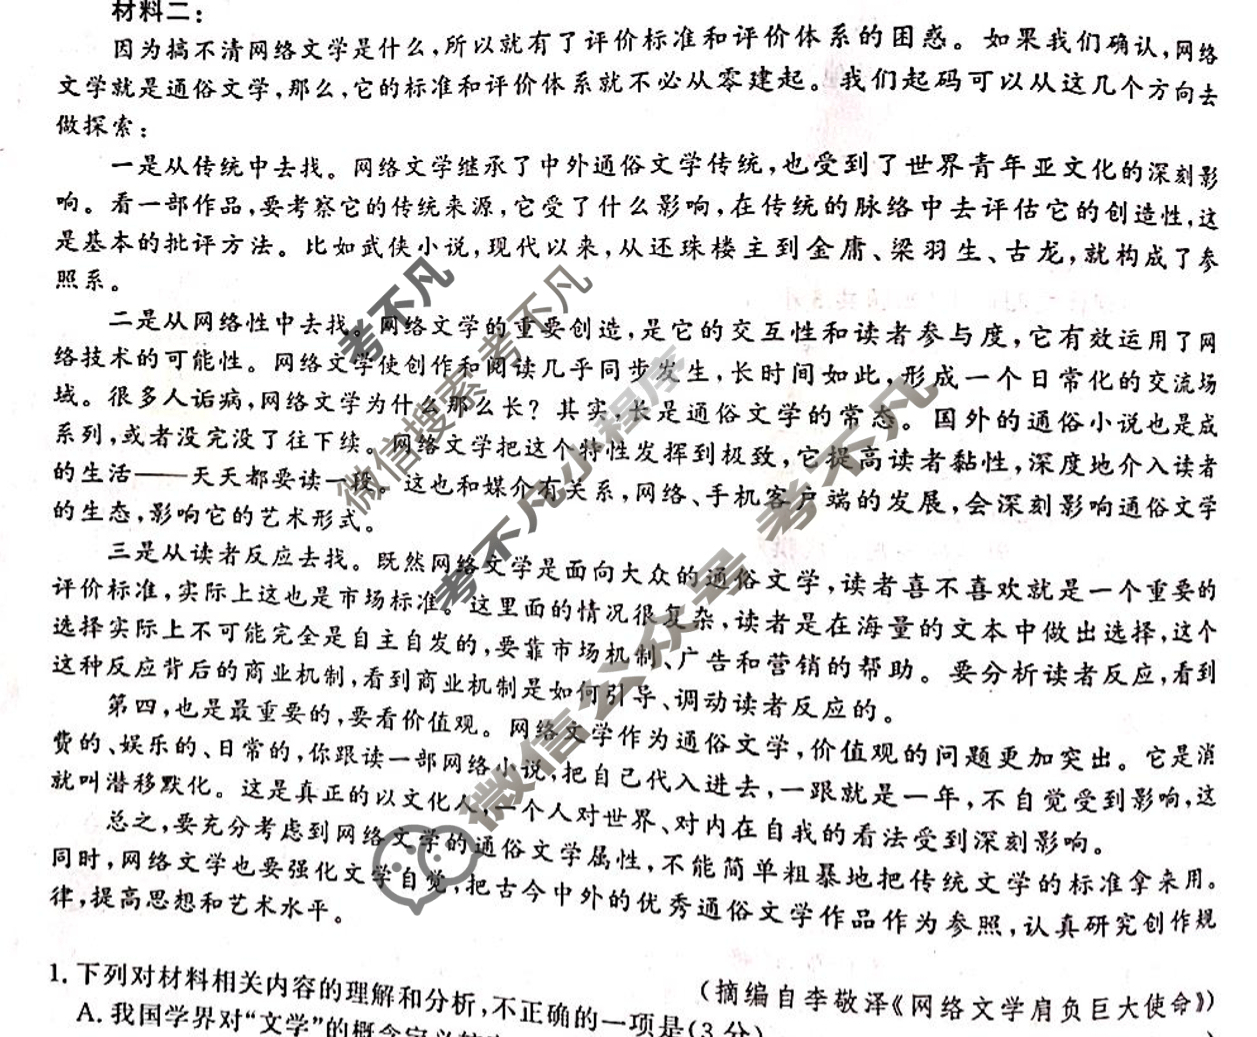 材料二：
因为搞不清网络文学是什么，所以就有了评价标准和评价体系的困惑。如果我们确认，网络
文学就是通俗文学，那么，它的标准和评价体系就不必从零建起。我们起码可以从这几个方向去
做探索：
一是从传统中去找。网络文学继承了中外通俗文学传统，也受到了世界青年亚文化的深刻影
响。看一部作品，要考察它的传统来源，它受了什么影响，在传统的脉络中去评估它的创造性，这
是基本的批评方法。比如武侠小说，现代以来，从还珠楼主到金庸、梁羽生、古龙，就构成了参
照系。
二是从网络性中去找。网络文学的重要创造，是它的交互性和读者参与度，它有效运用了网
络技术的可能性。网络文学使创作和阅读几乎同步发生，长时间如此，形成一个日常化的交流场
域。很多人诟病，网络文学为什么那么长？其实，长是通俗文学的常态。国外的通俗小说也是成
系列，或者没完没了往下续。网络文学把这个特性发挥到极致，它提高读者黏性，深度地介入读者
的生活——天天都要读一段。这也和媒介有关系，网络、手机客户端的发展，会深刻影响通俗文学
的生态，影响它的艺术形式。
三是从读者反应去找。既然网络文学是面向大众的通俗文学，读者喜不喜欢就是一个重要的
评价标准，实际上这也是市场标准。这里面的情况很复杂，读者是在海量的文本中做出选择，这个
选择实际上不可能完全是自主自发的，要靠市场机制、广告和营销的帮助。要分析读者反应，看到
这种反应背后的商业机制，看到商业机制是如何引导、调动读者反应的。
第四，也是最重要的，要看价值观。网络文学作为通俗文学，价值观的问题更加突出。它是消
费的、娱乐的、日常的，你跟读一部网络小说，把自己代入进去，一跟就是一年，不自觉受到影响，这
就叫潜移默化。这是真正的以文化人，一个人对世界、对内在自我的看法受到深刻影响。
总之，要充分考虑到网络文学的通俗文学属性，不能简单粗暴地把传统文学的标准拿来用。
同时，网络文学也要强化文学自觉，把古今中外的优秀通俗文学作品作为参照，认真研究创作规
律，提高思想和艺术水平。
（摘编自李敬泽《网络文学肩负巨大使命》）
1. 下列对材料相关内容的理解和分析，不正确的一项是（3分）
A. 我国学界对“文学”的概念
考不凡
考不凡
微信搜索
考不凡小程序
考不凡
微信公众号